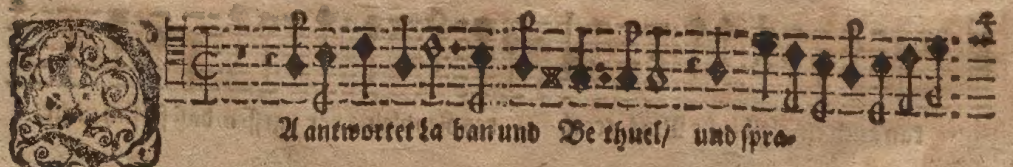 D A antwortet La ban und Be thuel/ und spra-